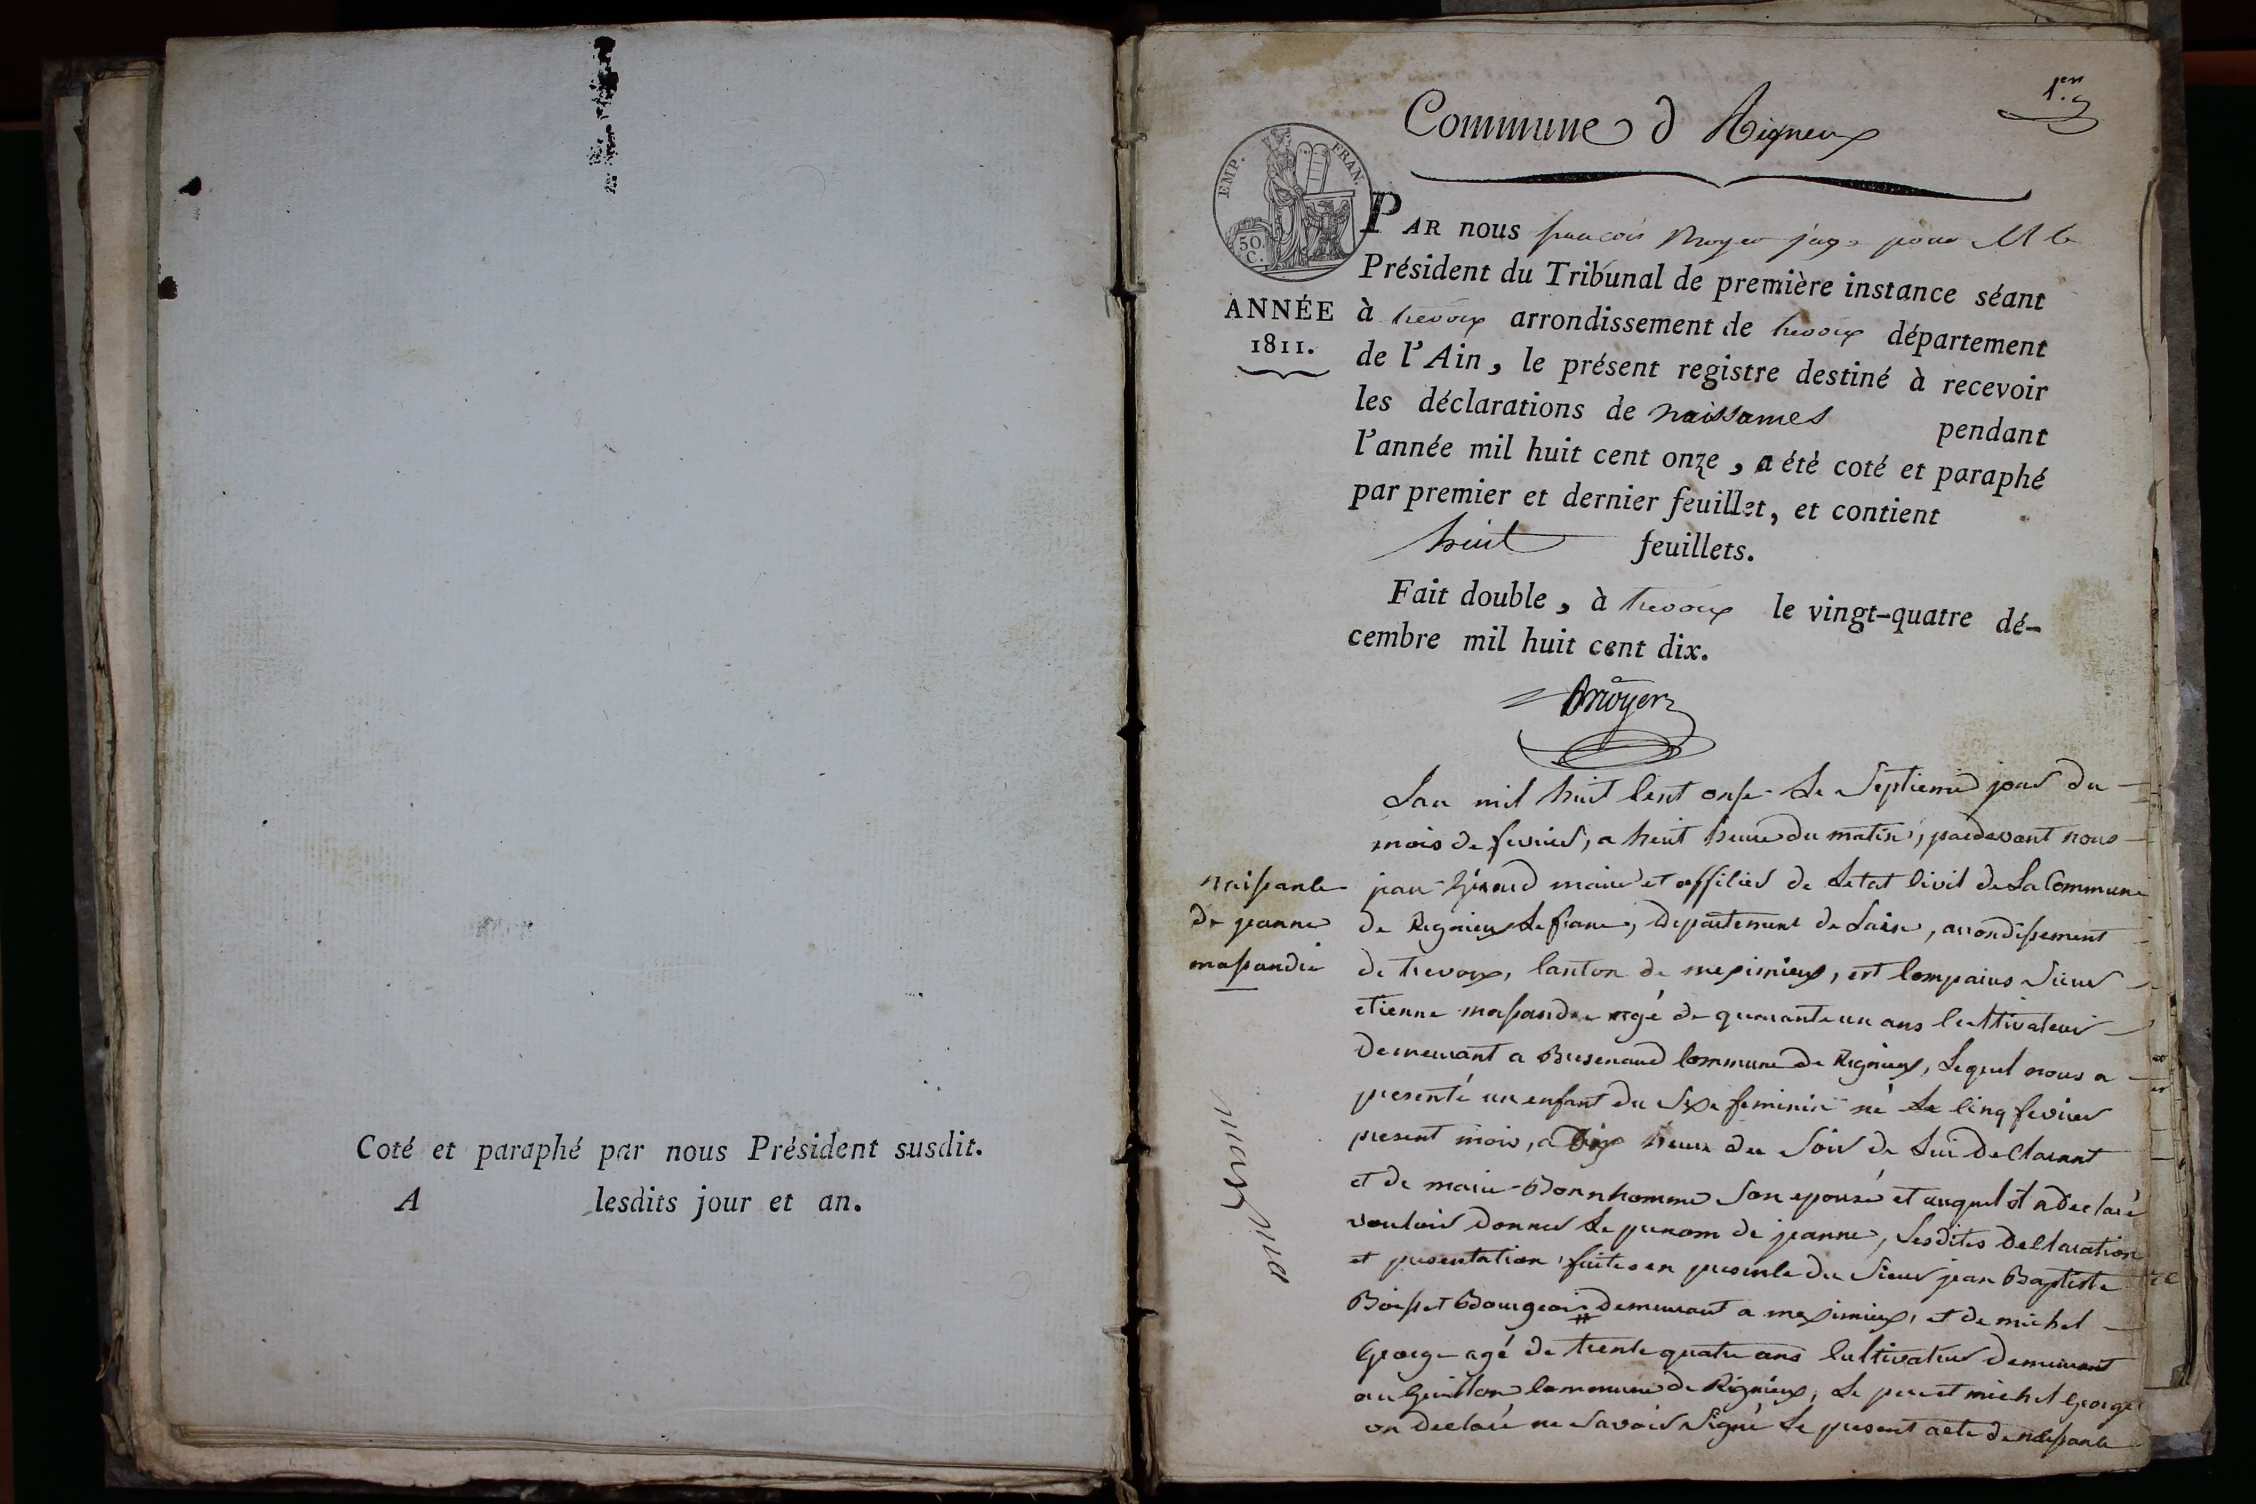 Coté et paraphé par nous Président susdit.
A lesdits jour et an.
1.er
Commune d Rigneux
EMP. FRAN.
50.
C.
ANNÉE
1811.
PAR nous françois juge pour M le
Président du Tribunal de première instance séant
à trevoux arrondissement de trevoux département
de l'Ain, le présent registre destiné à recevoir
les déclarations de naissances pendant
l'année mil huit cent onze, a été coté et paraphé
par premier et dernier feuillet, et contient
huit feuillets.
Fait double, à trevoux le vingt-quatre dé-
cembre mil huit cent dix.
naissance
de jeanne
massandre
Lan mil huit cent onse Le Septieme jour du
mois de fevrier, a huit heure du matin, pardevant nous
jean Girard maire et officier de Letat Civil de La Commune
de Rignieux Le franc, departement de Lain, arrondissement
de trevoux, Canton de meximieux, est Comparus Sieur
etienne massandre agé de quarante un ans Cultivateur
demeurant a Commune de Rignieux, Lequel nous a
presenté un enfant du Sexe feminin né Le Cinq fevrier
present mois, a Dix heure du Soir de Lui declarant
et de marie Bonnhomme Son epouse et auquel il a declaré
vouloir donner Le prenom de jeanne, Lesdites declaration
et presentation faites en presence du Sieur jean Baptiste
Boisset Bourgeois demeurant a meximieux, et de michel
George agé de trente quatre ans Cultivateur demeurant
au Guillon Commune de Rignieux, Le pere et michel George
on declaré ne Savoir Signé Le present acte de naissance